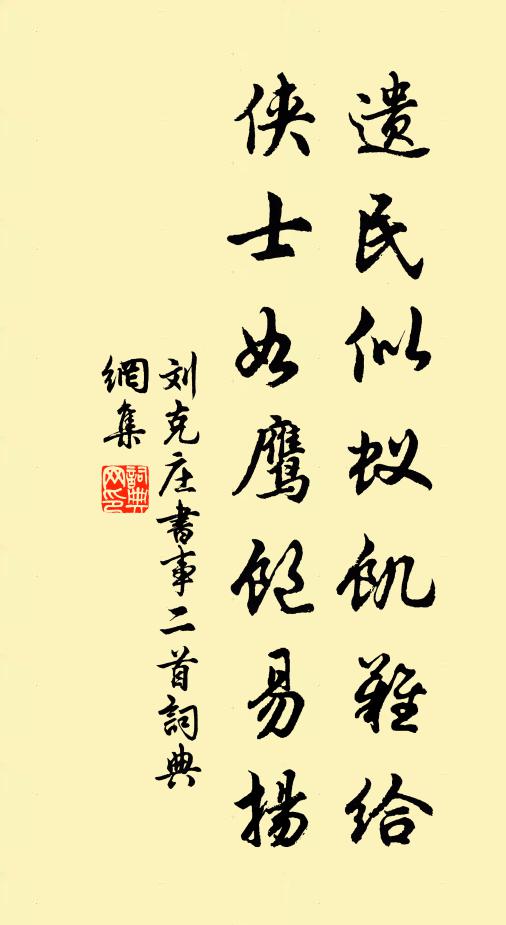 遗民似蚁飢难给
侠士如鹰饱易扬
刘克庄书事二首詞典
網集
詞典
网印